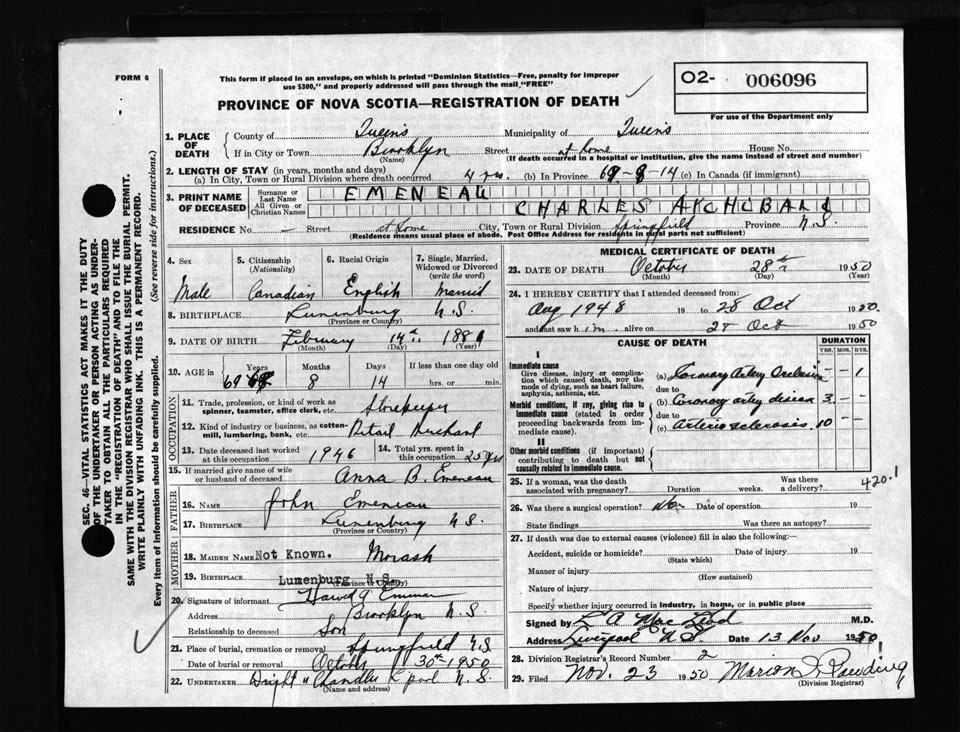 FORM 6
This form if placed in an envelope, on which is printed "Dominion Statistics—Free, penalty for improper
use $300," and properly addressed will pass through the mail "FREE"
PROVINCE OF NOVA SCOTIA—REGISTRATION OF DEATH
02- 006096
For use of the Department only
SEC. 46—VITAL STATISTICS ACT MAKES IT THE DUTY
OF THE UNDERTAKER OR PERSON ACTING AS UNDER-
TAKER TO OBTAIN ALL THE PARTICULARS REQUIRED
IN THE "REGISTRATION OF DEATH" AND TO FILE THE
SAME WITH THE DIVISION REGISTRAR WHO SHALL ISSUE THE BURIAL PERMIT.
WRITE PLAINLY WITH UNFADING INK. THIS IS A PERMANENT RECORD.
Every item of information should be carefully supplied. (See reverse side for instructions.)
1. PLACE OF DEATH
County of Queens Municipality of Queens
If in City or Town Brooklyn Street at home House No.
(Name) (If death occurred in a hospital or institution, give the name instead of street and number)
2. LENGTH OF STAY (in years, months and days)
(a) In City, Town or Rural Division where death occurred 4 yrs. (b) In Province 69-8-14 (c) In Canada (if immigrant)
3. PRINT NAME OF DECEASED
Surname or Last Name EMENEAU
All Given or Christian Names CHARLES ARCHOBALD
RESIDENCE No. — Street at home City, Town or Rural Division Springfield Province N.S.
(Residence means usual place of abode. Post Office Address for residents in rural parts not sufficient)
4. Sex 5. Citizenship (Nationality) 6. Racial Origin 7. Single, Married, Widowed or Divorced (write the word)
Male Canadian English Married
8. BIRTHPLACE Lunenburg N.S.
(Province or Country)
9. DATE OF BIRTH February 14th 1881
(Month) (Day) (Year)
10. AGE in Years Months Days If less than one day old
69 8 14 hrs. or min.
OCCUPATION
11. Trade, profession, or kind of work as spinner, teamster, office clerk, etc. Storekeeper
12. Kind of industry or business, as cotton-mill, lumbering, bank, etc. Retail Merchant
13. Date deceased last worked at this occupation 1946 14. Total yrs. spent in this occupation 25 yrs
15. If married give name of wife or husband of deceased Anna B. Emeneau
FATHER
16. NAME John Emeneau
17. BIRTHPLACE Lunenburg N.S.
(Province or Country)
MOTHER
18. MAIDEN NAME Not Known. Morash
19. BIRTHPLACE Lumenburg N.S.
(Province or Country)
20. Signature of informant
Address Brooklyn N.S
Relationship to deceased Son
21. Place of burial, cremation or removal Springfield N.S.
Date of burial or removal October 30th 1950
22. UNDERTAKER Chandler N.S.
(Name and address)
MEDICAL CERTIFICATE OF DEATH
23. DATE OF DEATH October 28th 1950
(Month) (Day) (Year)
24. I HEREBY CERTIFY that I attended deceased from:
Aug 1948 19 to 28 Oct 1950
and last saw him alive on 28 Oct 1950
CAUSE OF DEATH DURATION
YRS. MOS. DYS.
I
Immediate cause
Give disease, injury or compli-
cation which caused death, not the
mode of dying, such as heart failure,
asphyxia, asthenia, etc.
(a) Coronary Artery Occlusion — — 1
due to
Morbid conditions, if any, giving rise to
immediate cause (stated in order
proceeding backwards from im-
mediate cause).
(b) Coronary artery disease 3 — —
due to
(c) Arteriosclerosis 10 — —
II
Other morbid conditions (if important)
contributing to death but not
causally related to immediate cause.
420.1
25. If a woman, was the death associated with pregnancy? Duration weeks. Was there a delivery?
26. Was there a surgical operation? No. Date of operation 19
State findings Was there an autopsy?
27. If death was due to external causes (violence) fill in also the following:—
Accident, suicide or homicide? Date of injury 19
(State which)
Manner of injury
(How sustained)
Nature of injury
Specify whether injury occurred in industry, in home, or in public place
Signed by MacLeod M.D.
Address Liverpool N.S. Date 13 Nov 1950
28. Division Registrar's Record Number 2
29. Filed Nov. 23 1950 Marion
(Division Registrar)